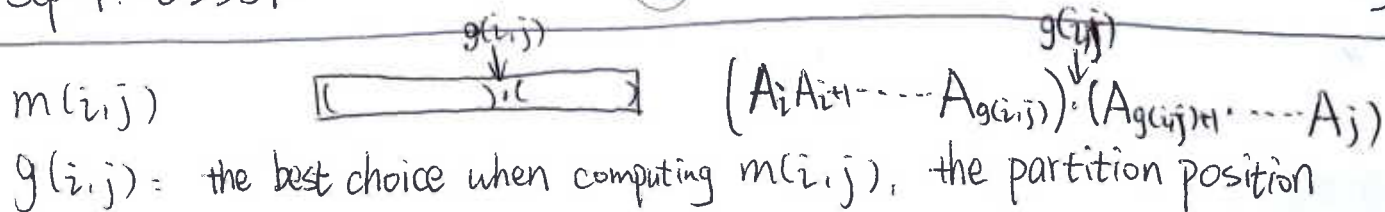 g(i,j) g(i,j)
m(i,j) ( ).( ) (A_i A_{i+1} ----- A_{g(i,j)}).(A_{g(i,j)+1} ..... A_j)
g(i,j): the best choice when computing m(i,j), the partition position